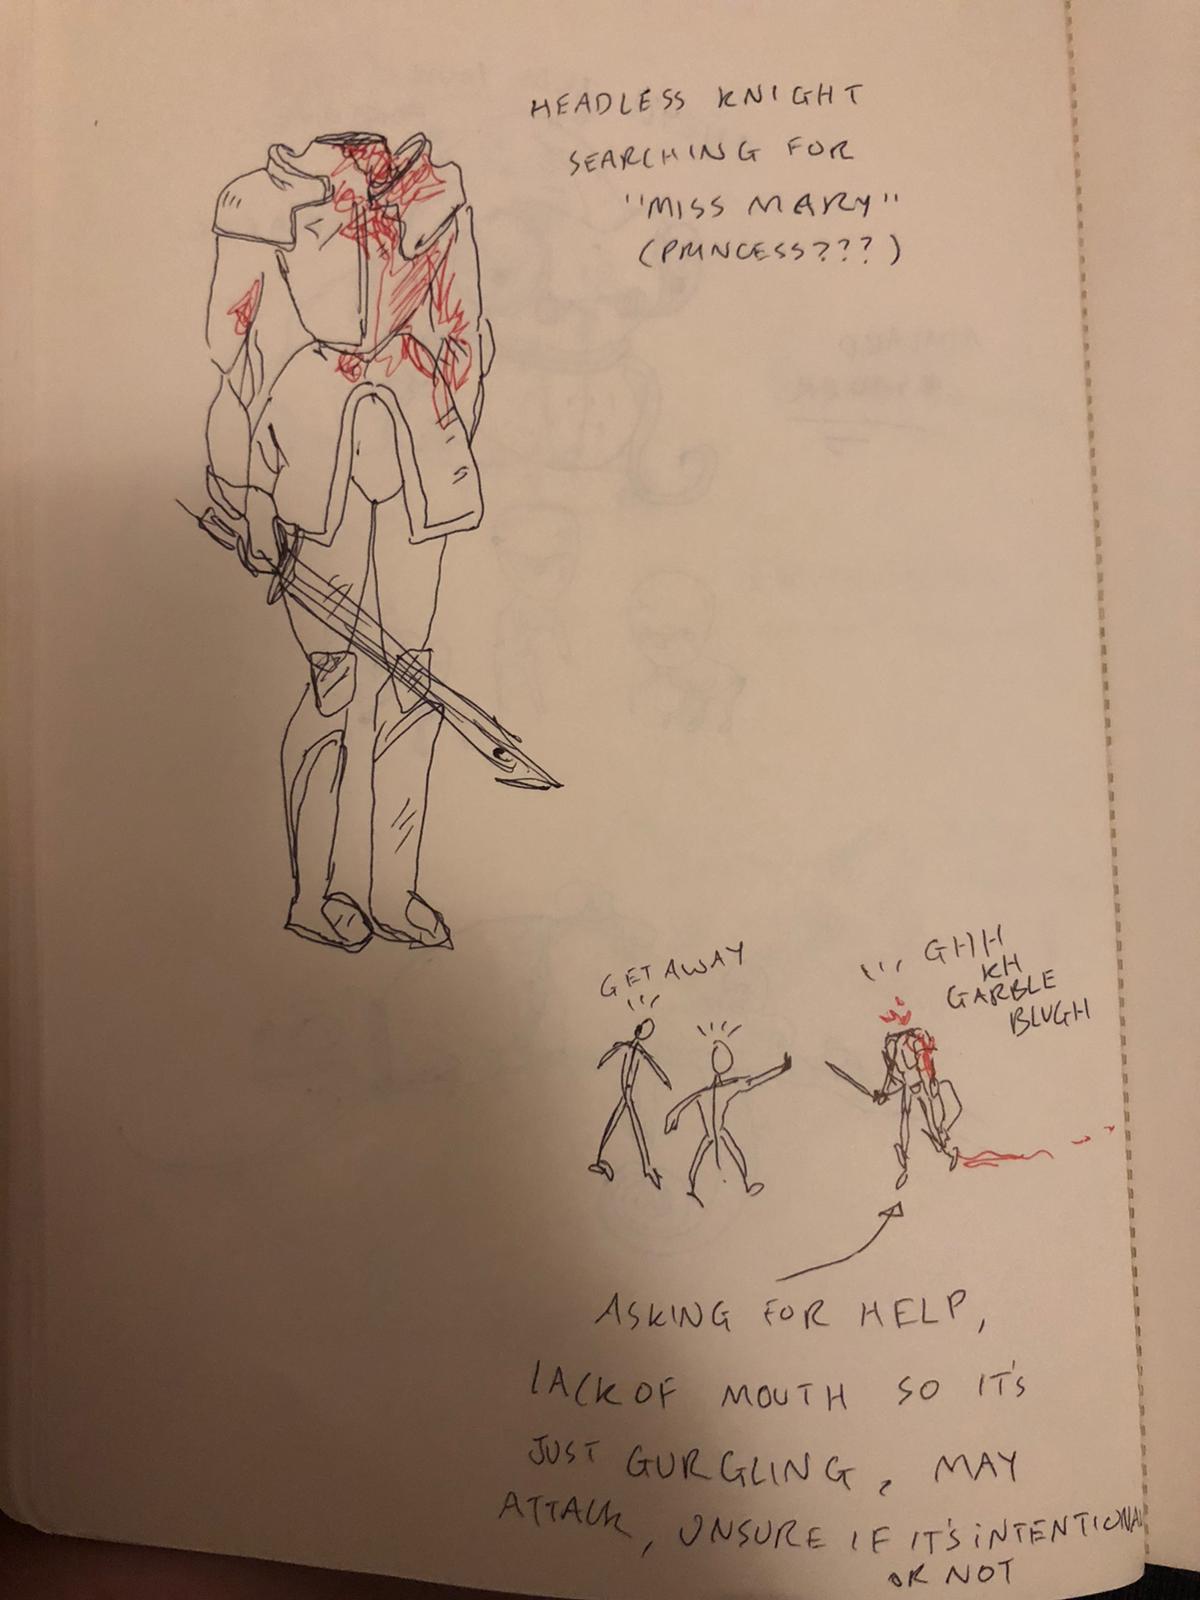 HEADLESS KNIGHT
SEARCHING FOR
"MISS MARY"
(PRINCESS???)
GET AWAY
GHH
KH
GARBLE
BLUGH
ASKING FOR HELP,
LACK OF MOUTH SO IT'S
JUST GURGLING, MAY
ATTACK, UNSURE IF IT'S INTENTIONAL
OR NOT